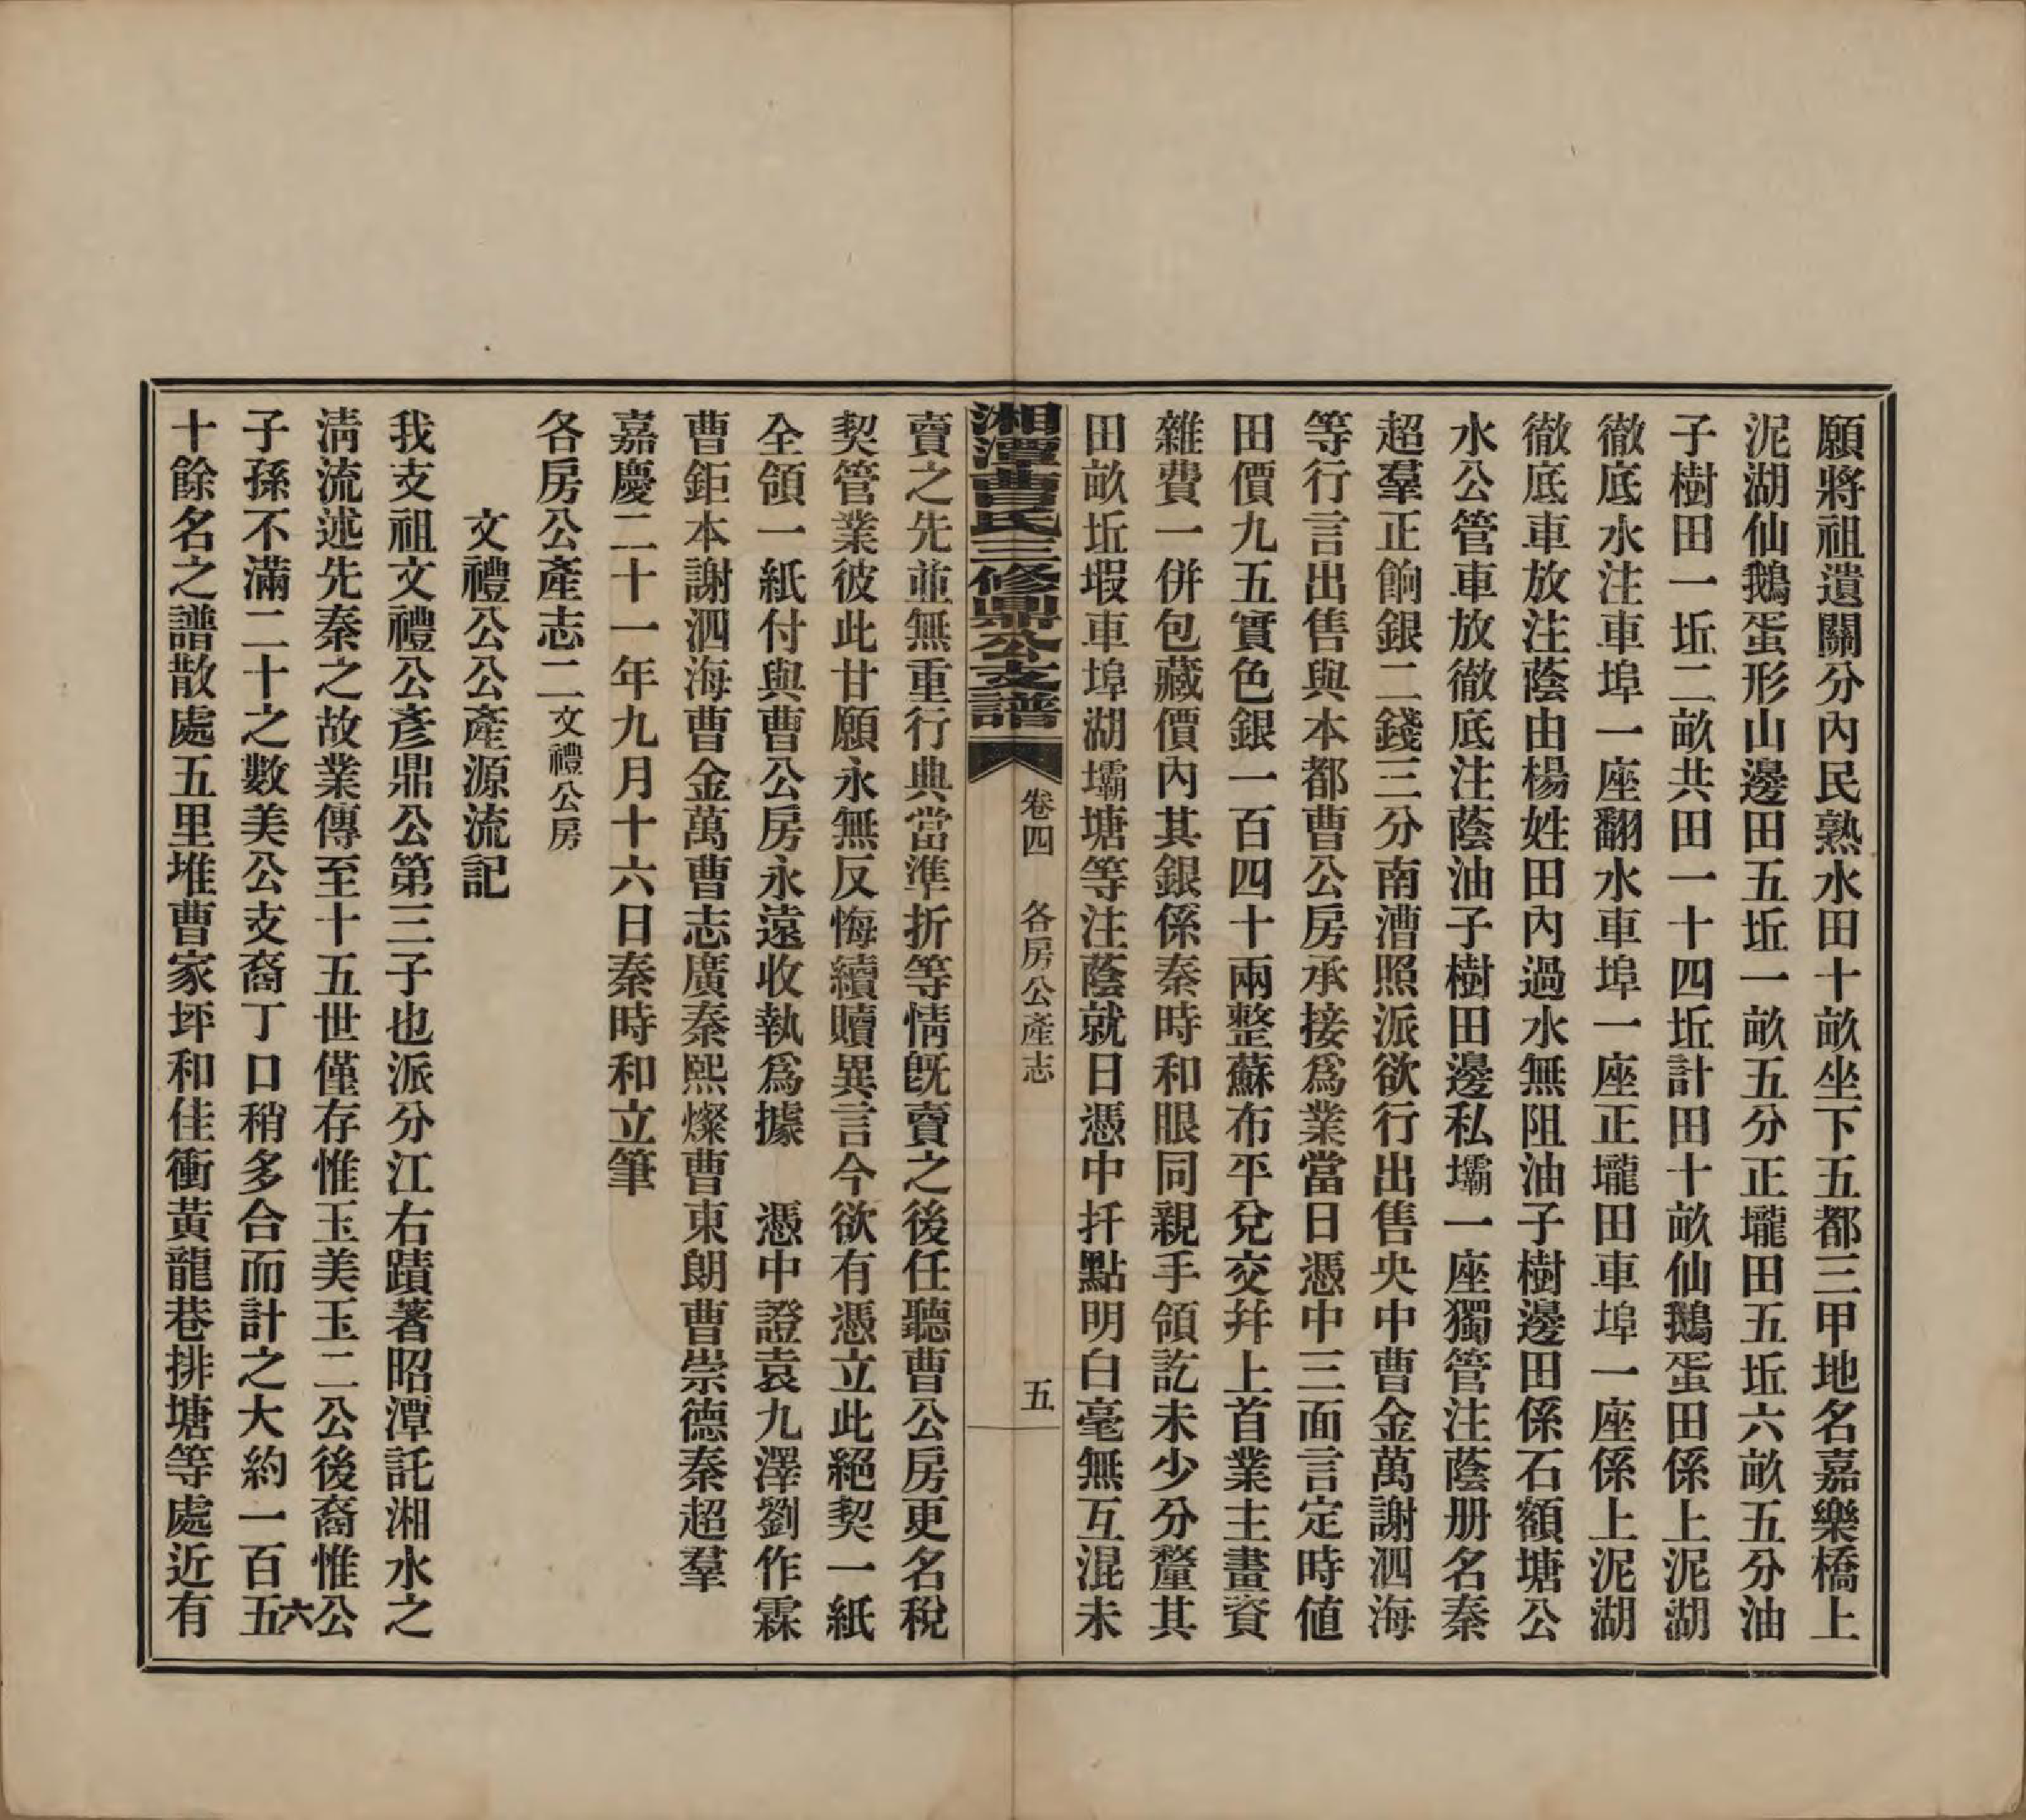 願將祖遺關分內民熟水田十畝坐下五都三甲地名嘉樂橋上
泥湖仙鵝蛋形山邊田五坵一畝五分正壠田五坵六畝五分油
子樹田一坵二畝共田一十四坵計田十畝仙鵝蛋田係上泥湖
徹底水注車埠一座翻水車埠一座正壠田車埠一座係上泥湖
徹底車放注蔭由楊姓田內過水無阻油子樹邊田係石額塘公
水公管車放徹底注蔭油子樹田邊私壩一座獨管注蔭册名秦
超羣正餉銀二錢三分南漕照派欲行出售央中曹金萬謝泗海
等行言出售與本都曹公房承接爲業當日憑中三面言定時値
田價九五實色銀一百四十兩整蘇布平兌交并上首業主畫資
雜費一併包藏價內其銀係秦時和眼同親手領訖未少分釐其
田畝坵塅車埠湖壩塘等注蔭就日憑中扦點明白毫無互混未
湘潭曹氏三修鼎公支譜 卷四 各房公產志 五
賣之先並無重行典當準折等情旣賣之後任聽曹公房更名稅
契管業彼此甘願永無反悔續贖異言今欲有憑立此絕契一紙
全領一紙付與曹公房永遠收執爲據 憑中證袁九澤劉作霖
曹鉅本謝泗海曹金萬曹志廣秦熙燦曹東朗曹崇德秦超羣
嘉慶二十一年九月十六日秦時和立筆
各房公產志二文禮公房
文禮公公產源流記
我支祖文禮公彥鼎公第三子也派分江右蹟著昭潭託湘水之
淸流述先秦之故業傳至十五世僅存惟玉美玉二公後裔惟公
子孫不滿二十之數美公支裔丁口稍多合而計之大約一百五六
十餘名之譜散處五里堆曹家坪和佳衝黃龍巷排塘等處近有